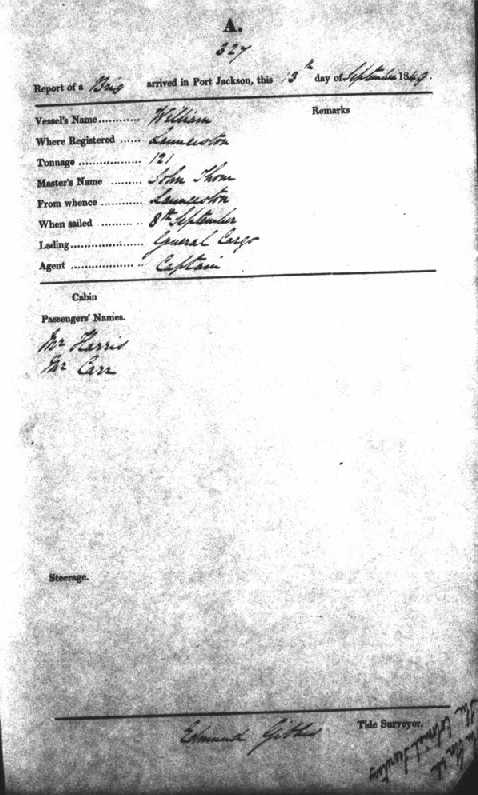 A.
327
Report of a Brig arrived in Port Jackson, this 13th day of September 1849.
Remarks
Vessel's Name........... William
Where Registered ...... Launceston
Tonnage .................. 121
Master's Name ......... John Thom
From whence ............ Launceston
When sailed ............ 8th September
Lading..................... General Cargo
Agent ..................... Captain
Cabin
Passengers' Names.
Mr Harris
Mr Carr
Steerage.
Edmund Gibbes Tide Surveyor.